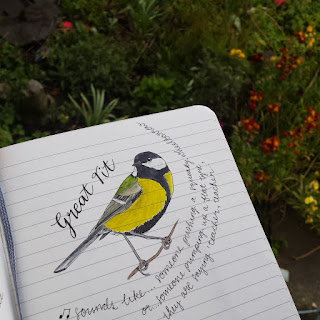 Great Tit
♫ sounds like... someone pushing a squeaky wheelbarrow
or someone pumping up a flat tyre.
they are saying teacher, teacher